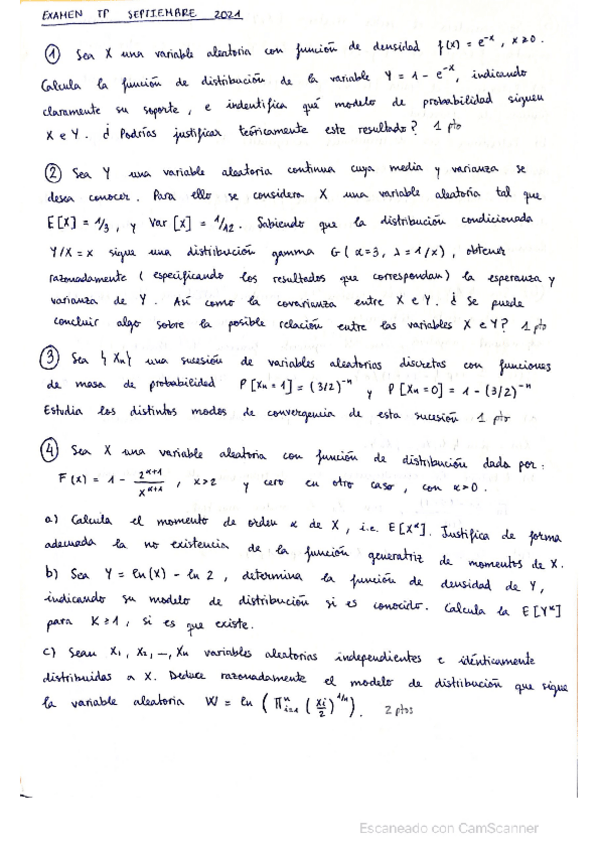 EXAMEN TP SEPTIEMBRE 2021
① Sea X una variable aleatoria con función de densidad f(x) = e^{-x}, x≥0.
Calcula la función de distribución de la variable Y = 1 - e^{-X}, indicando
claramente su soporte, e indentifica qué modelo de probabilidad siguen
X e Y. ¿ Podrías justificar teóricamente este resultado? 1 pto
② Sea Y una variable aleatoria continua cuya media y varianza se
desea conocer. Para ello se considera X una variable aleatoria tal que
E[X] = 1/3, y Var [X] = 1/12. Sabiendo que la distribución condicionada
Y/X = x sigue una distribución gamma G ( α=3, λ = 1/x), obtener
razonadamente ( especificando los resultados que correspondan) la esperanza y
varianza de Y. Así como la covarianza entre X e Y. ¿ Se puede
concluir algo sobre la posible relación entre las variables X e Y? 1 pto
③ Sea {Xn} una sucesión de variables aleatorias discretas con funciones
de masa de probabilidad P[Xn = 1] = (3/2)^{-n} y P[Xn = 0] = 1 - (3/2)^{-n}
Estudia los distintos modos de convergencia de esta sucesión 1 pto
④ Sea X una variable aleatoria con función de distribución dada por:
F(x) = 1 - 2^{α+1}/x^{α+1}, x>2 y cero en otro caso, con α>0.
a) Calcula el momento de orden α de X, i.e. E[X^α]. Justifica de forma
adecuada la no existencia de la función generatriz de momentos de X.
b) Sea Y = ln(X) - ln 2, determina la función de densidad de Y,
indicando su modelo de distribución si es conocido. Calcula la E[Y^K]
para K≥1, si es que existe.
c) Sean X1, X2, ..., Xn variables aleatorias independientes e idénticamente
distribuidas a X. Deduce razonadamente el modelo de distribución que sigue
la variable aleatoria W = ln ( Π_{i=1}^{n} (Xi/2)^{1/n} ). 2 ptos
Escaneado con CamScanner